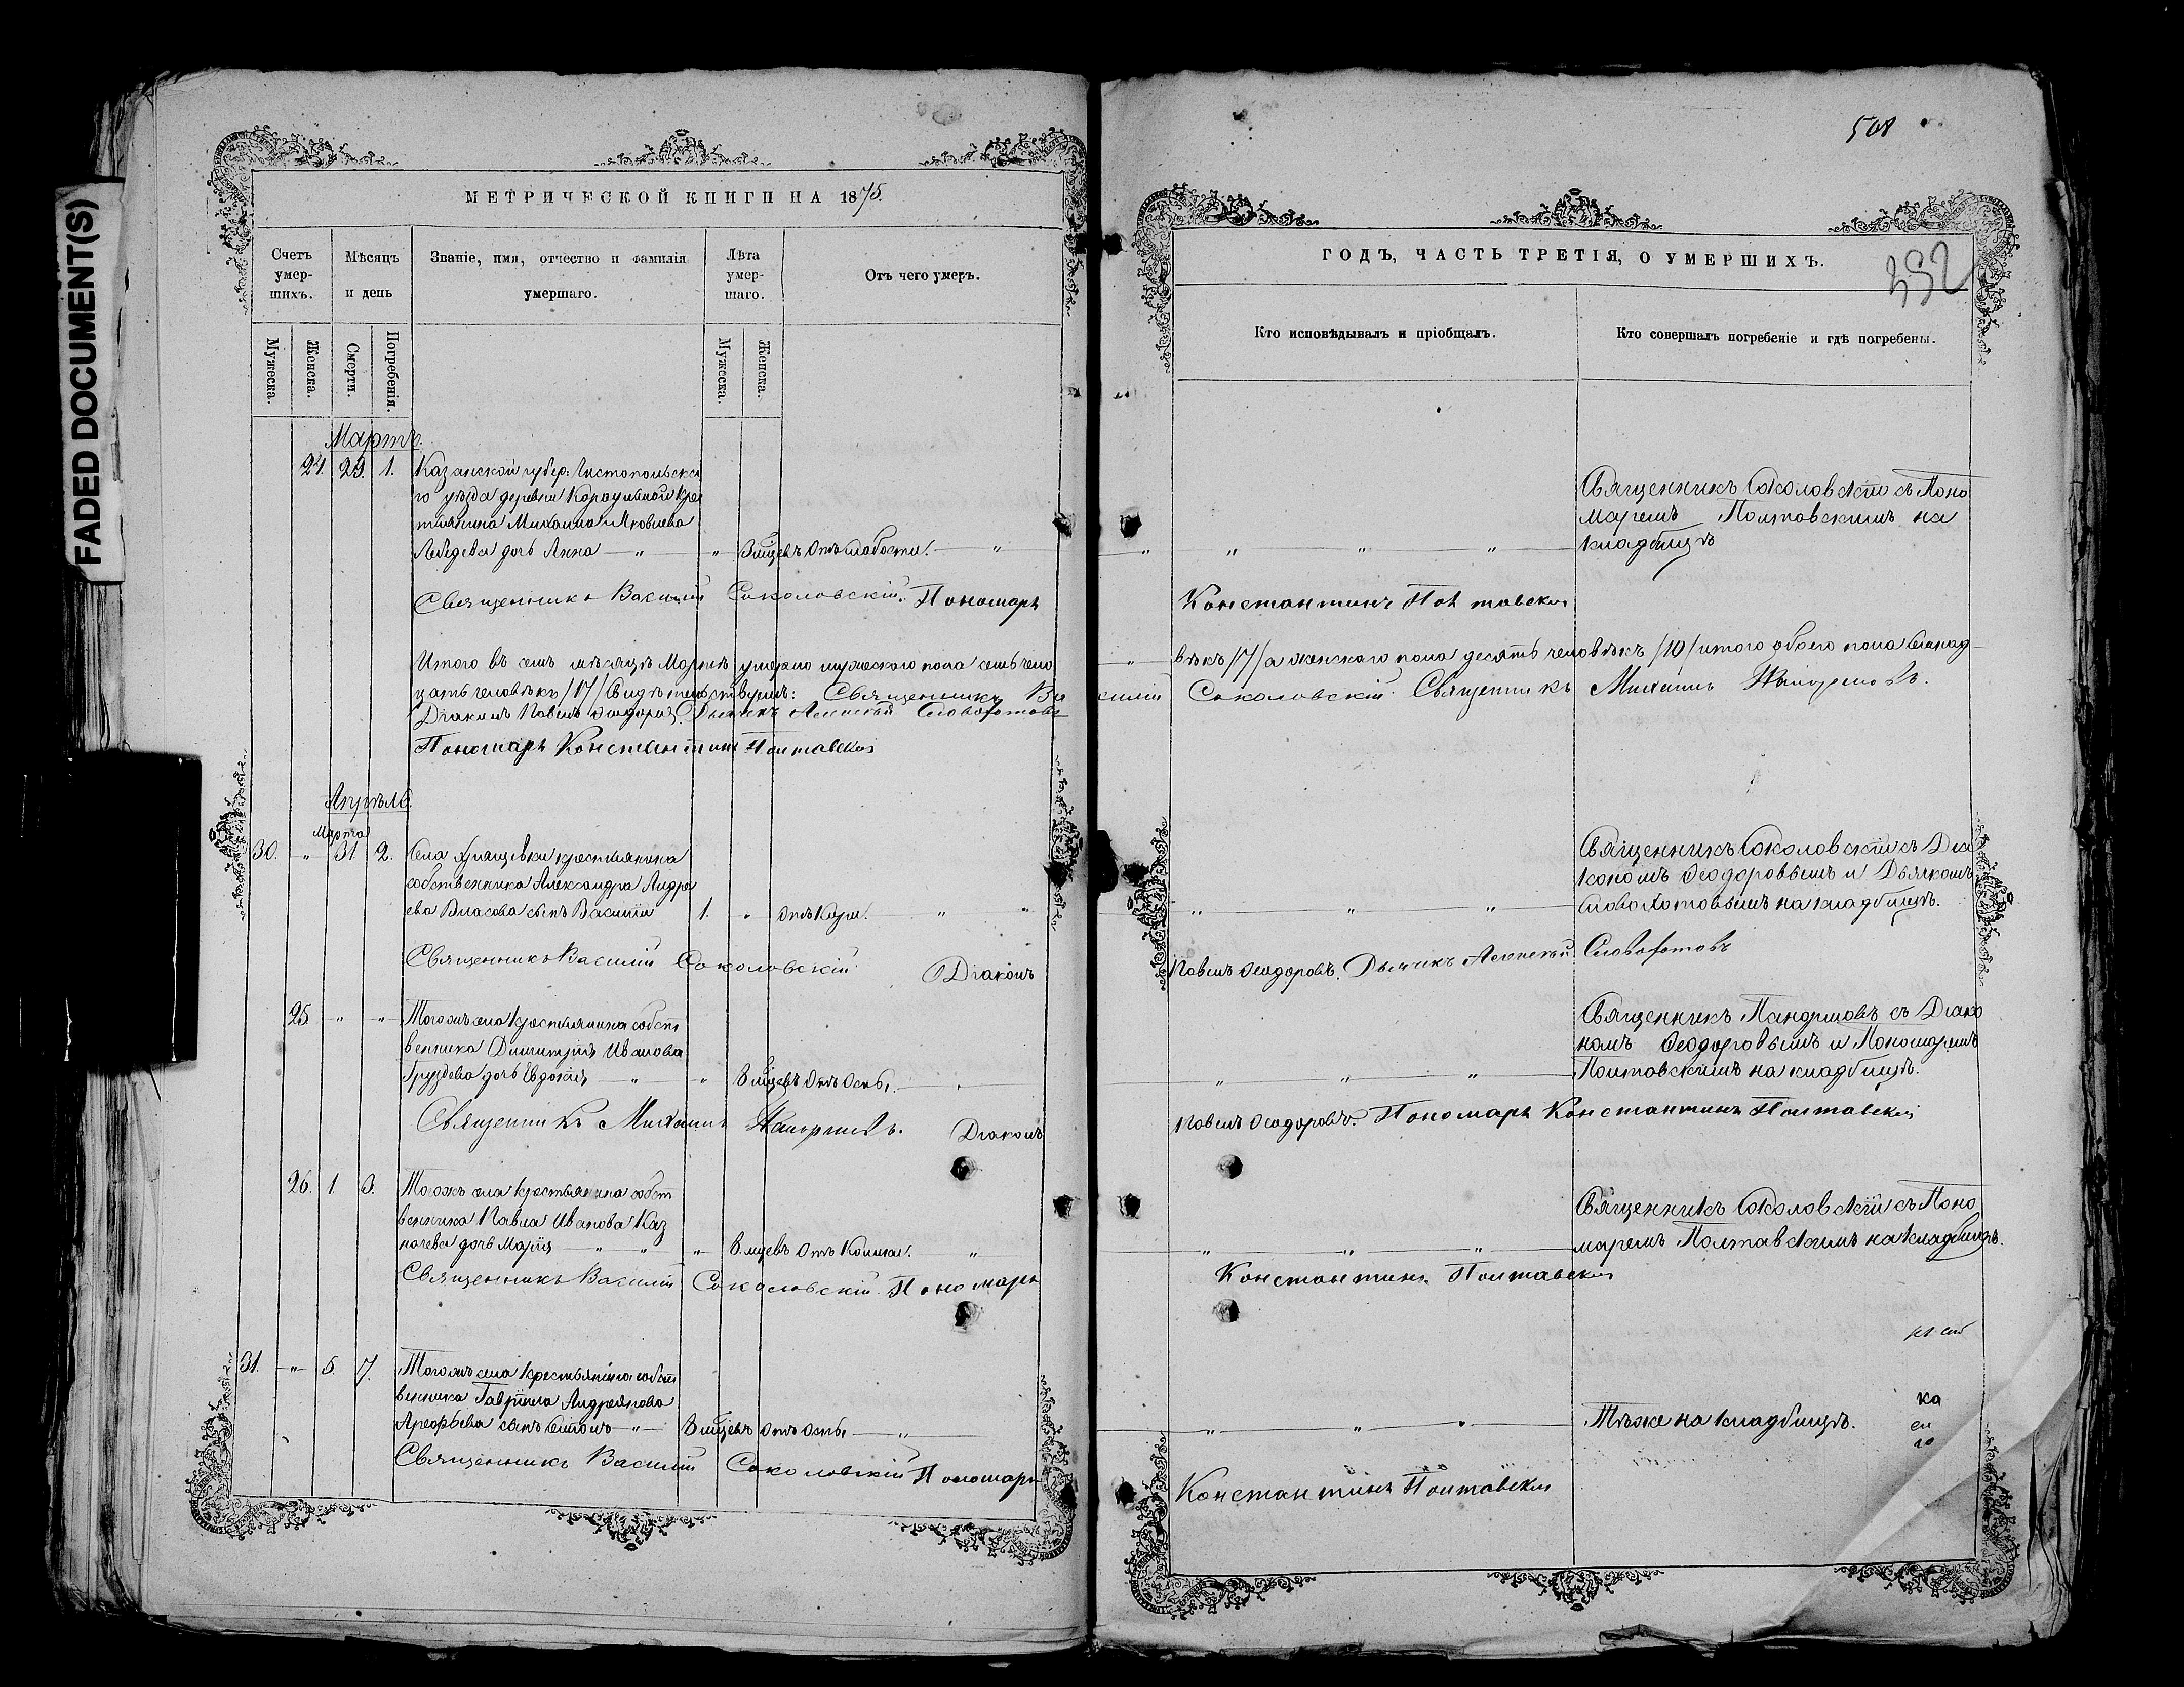 FADED DOCUMENT(S)
МЕТРИЧЕСКОЙ КНИГИ НА 1875.
Счетъ умер- шихъ.
Мѣсяцъ и день
Званіе, имя, отчество и фамилія умершаго.
Лѣта умер- шаго.
Отъ чего умеръ.
Мужеска.
Женска.
Смерти.
Погребенія.
Мужеска.
Женска.
Мартъ.
24. 29. 1. Казанской губер: Чистопольска
го уѣзда деревни Караульной Крес
тьянина Михаила Яковлева
Лебедева дочь Анна — " — " 3 мцевъ Отъ слабости. — "
Священникъ Василій Соколовскій. Пономарь
Итого въ семъ мѣсяцѣ Мартѣ умерло мужескаго пола семь чело
цать человѣкъ /17/ Свидѣтельствуемъ: Священникъ Ва
Діаконъ Павелъ Ѳеодоровъ. Дьячекъ Алексѣй Словохотовъ
Пономарь Константинъ Полтавскій
Апрѣль
Марта
30. " 31. 2. Села Хрящевки крестьянина
собственника Александра Андре
ева Власова сынъ Василій 1. " отъ Кори. " "
Священникъ Василій Соколовскій Діаконъ
25. " " Тогожъ села крестьянина собст
венника Димитрія Иванова
Груздева дочь Евдокія — " — " 8 мцевъ Отъ Оспы.
Священникъ Михаилъ Діаконъ
26. 1. 3. Тогожъ села крестьянина собст
венника Павла Иванова Каз
начева дочь Марія — " " " 8. мцевъ Отъ Кашля. "
Священникъ Василій Соколовскій. Пономарь
31. " 5. 7. Тогожъ села крестьянина собст
венника Гавріила Андреянова
Арефьева сынъ — " — 8 мцевъ отъ Оспы — "
Священникъ Василій Соколовскій Пономарь
508
392
ГОДЪ, ЧАСТЬ ТРЕТІЯ, О УМЕРШИХЪ.
Кто исповѣдывалъ и пріобщалъ.
Кто совершалъ погребеніе и гдѣ погребены.
Священникъ Соколовскій съ Поно
маремъ Полтавскимъ на
" " " " кладбищѣ
Константинъ Полтавскій
" вѣкъ /7/ а женскаго пола десять человѣкъ /10/ итого обоего пола семнад
силій Соколовскій. Священникъ Михаилъ
Священникъ Соколовскій съ Діа
кономъ Ѳеодоровымъ и Дьячкомъ
" " " Словохотовымъ на кладбищѣ.
Павелъ Ѳеодоровъ. Дьячекъ Алексѣй Словохотовъ
Священникъ съ Діако
номъ Ѳеодоровымъ и Пономаремъ
" " " Полтавскимъ на кладбищѣ.
Павелъ Ѳеодоровъ. Пономарь Константинъ Полтавскій
Священникъ Соколовскій съ Поно
" " " маремъ Полтавскимъ на кладбищѣ.
Константинъ Полтавскій
ка
" " Тѣже на кладбищѣ.
Константинъ Полтавскій